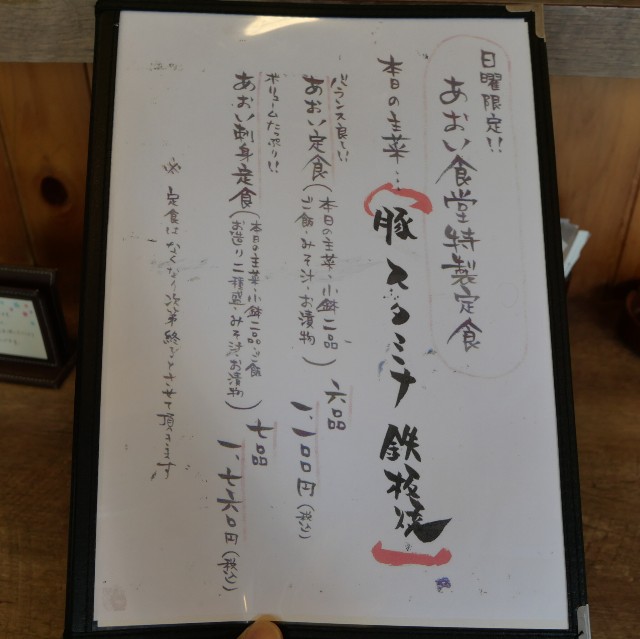 日曜限定!!
あおい食堂特製定食
本日の主菜…
豚スタミナ鉄板焼
バランス良し!!
あおい定食(本日の主菜・小鉢二品
ご飯・みそ汁・お漬物)
六品
一、一〇〇円(税込)
ボリュームたっぷり!!
あおい刺身定食(本日の主菜・小鉢二品・ご飯
お造り二種盛・みそ汁・お漬物)
七品
一、七六〇円(税込)
※定食はなくなり次第終了とさせて頂きます